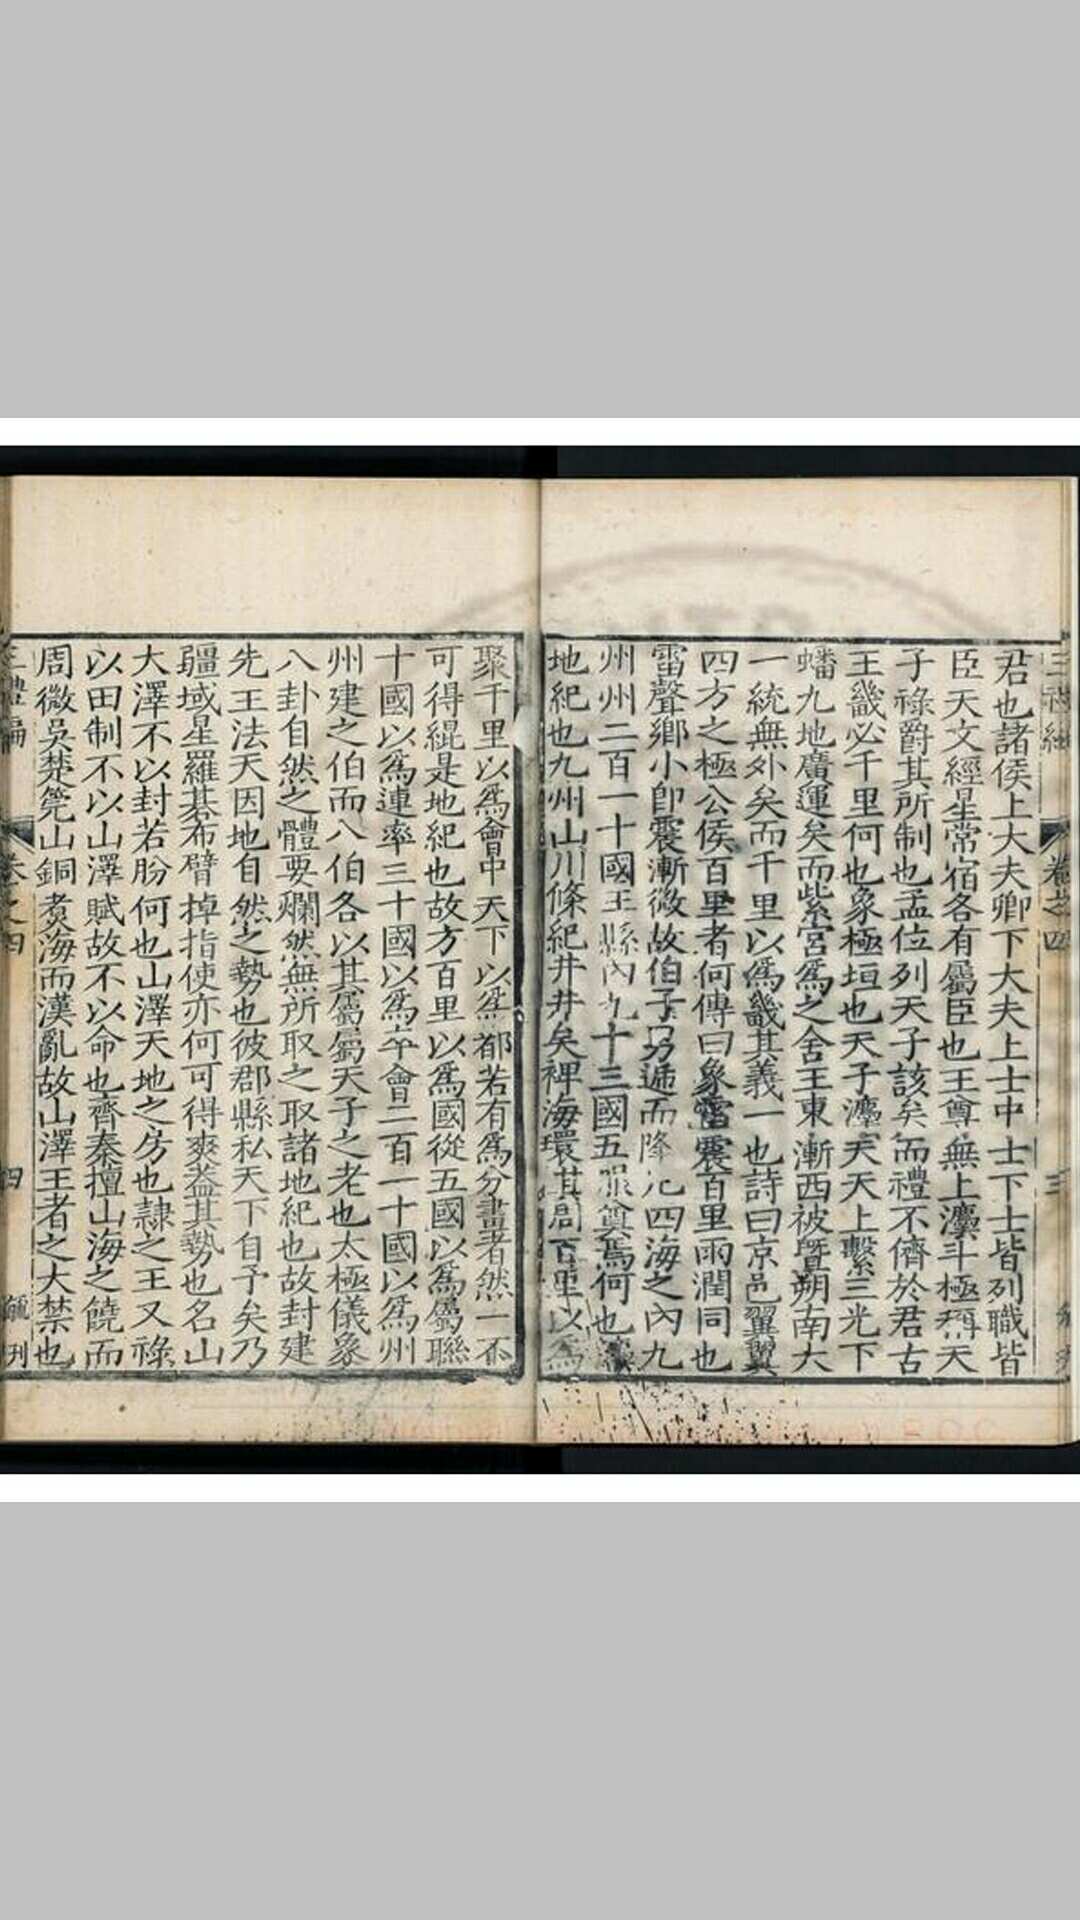 卷之四
三
君也諸侯上大夫卿下大夫上士中士下士皆列職皆
臣天文經星常宿各有屬臣也王尊無上灋斗極稱天
子祿爵其所制也孟位列天子該矣而禮不儕於君古
王畿必千里何也象極垣也天子灋天天上繫三光下
蟠九地廣運矣而紫宮爲之舍王東漸西被曁朔南大
一統無外矣而千里以爲畿其義一也詩曰京邑翼翼
四方之極公侯百里者何傳曰象雷震百里雨潤同也
雷聲鄉小卽震漸微故伯子男遞而降凡四海之內九
州州二百一十國王縣內九十三國五服奠焉何也灋
地紀也九州山川條紀井井矣裨海環其周百里以爲
聚千里以爲會中天下以爲都若有爲分畫者然一不
可得緄是地紀也故方百里以爲國從五國以爲屬聯
十國以爲連率三十國以爲卒會二百一十國以爲州
州建之伯而八伯各以其屬屬天子之老也太極儀象
八卦自然之體要爛然無所取之取諸地紀也故封建
先王法天因地自然之勢也彼郡縣私天下自予矣乃
疆域星羅碁布臂掉指使亦何可得爽蓋其勢也名山
大澤不以封若肦何也山澤天地之房也隸之王又祿
以田制不以山澤賦故不以命也齊秦擅山海之饒而
周微吳楚筦山銅煑海而漢亂故山澤王者之大禁也
三禮編
卷之四
四
刊